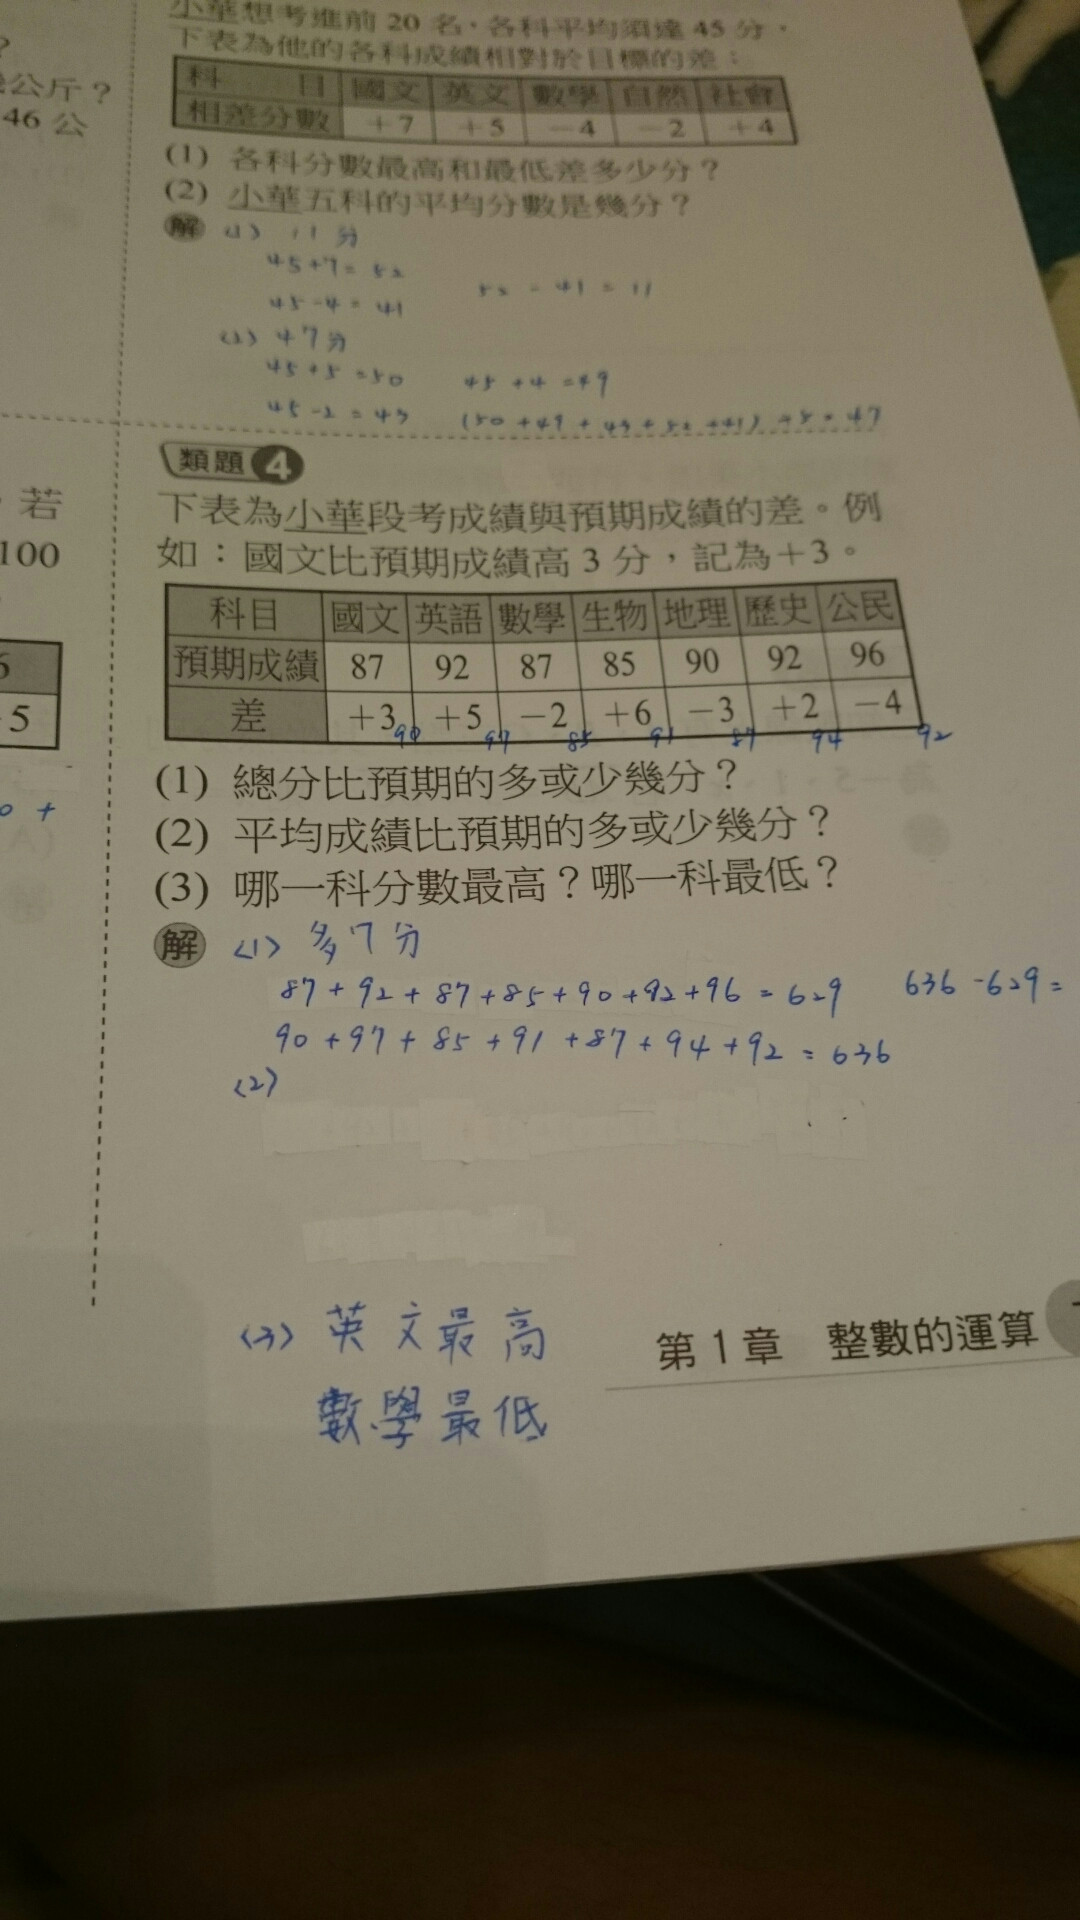 ?
公斤？
46 公
若
100
6
5
0 +
小華想考進前 20 名，各科平均須達 45 分，
下表為他的各科成績相對於目標的差：
科 目 國文 英文 數學 自然 社會
相差分數 +7 +5 -4 -2 +4
(1) 各科分數最高和最低差多少分？
(2) 小華五科的平均分數是幾分？
解 (1) 11 分
45+7=52
45-4=41 52-41=11
(2) 47分
45+5=50 45+4=49
45-2=43 (50+49+43+52+41)÷5=47
類題 4
下表為小華段考成績與預期成績的差。例
如：國文比預期成績高 3 分，記為+3。
科目 國文 英語 數學 生物 地理 歷史 公民
預期成績 87 92 87 85 90 92 96
差 +3 +5 -2 +6 -3 +2 -4
90 97 85 91 87 94 92
(1) 總分比預期的多或少幾分？
(2) 平均成績比預期的多或少幾分？
(3) 哪一科分數最高？哪一科最低？
解 (1) 多7分
87+92+87+85+90+92+96=629 636-629=
90+97+85+91+87+94+92=636
(2)
(3) 英文最高
數學最低
第 1 章 整數的運算